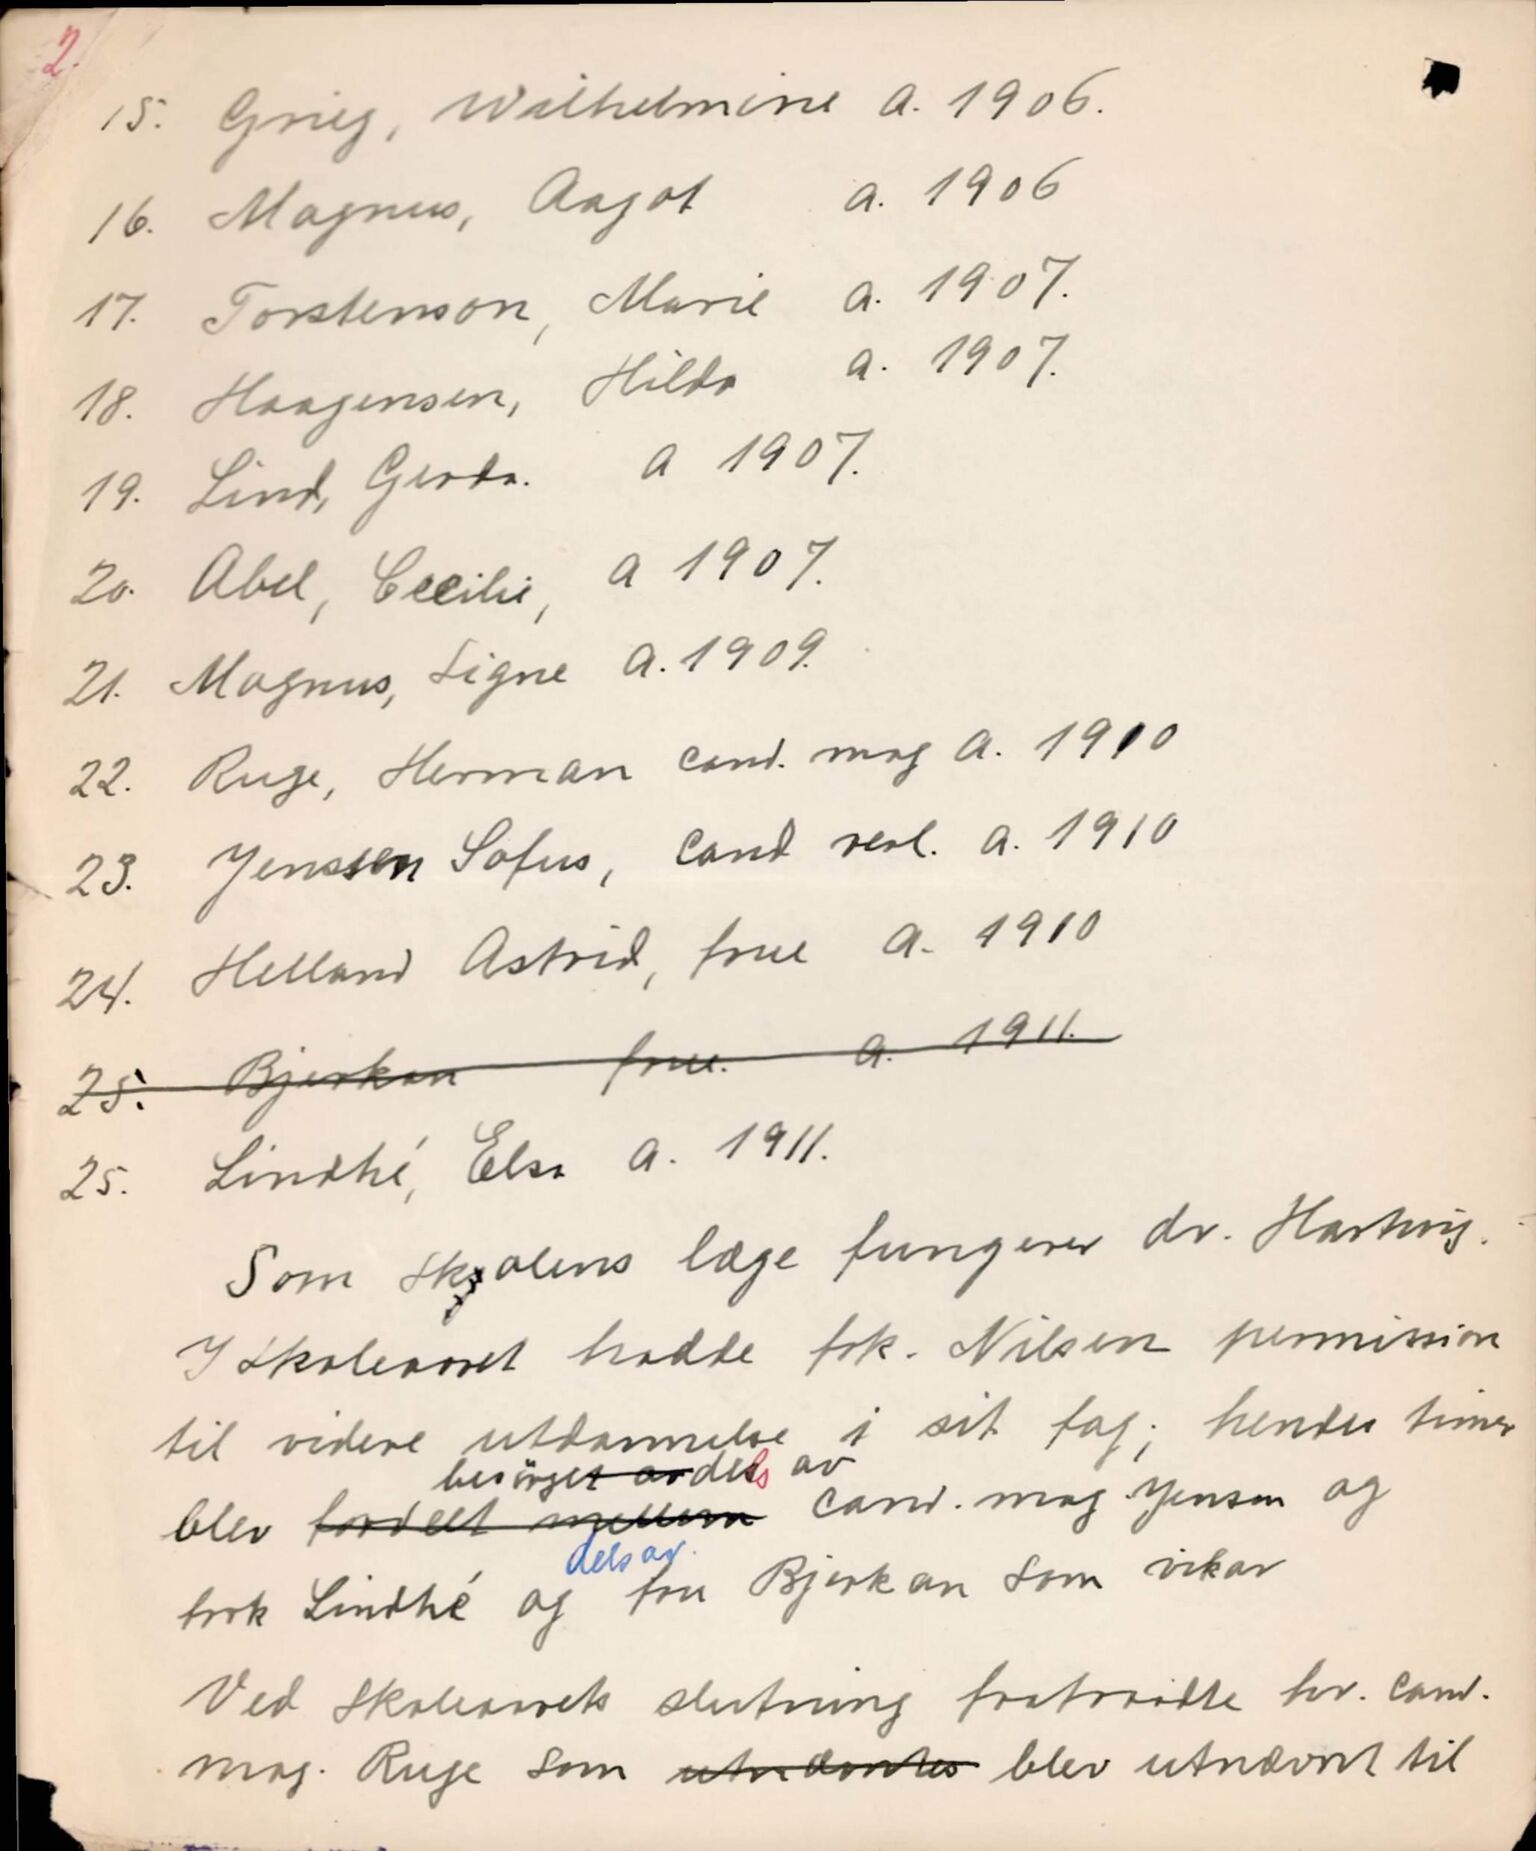 2.
15. Grieg, Wilhelmine a. 1906.
16. Magnus, Aagot a. 1906
17. Torstenson, Marie a. 1907.
18. Haagensen, Hilda a. 1907.
19. Lind, Gerda. a 1907.
20. Abel, Cecilie, a 1907.
21. Magnus, Signe a. 1909.
22. Ruge, Herman cand. mag a. 1910
23. Jenssen Sofus, cand real. a. 1910
24. Helland Astrid, frue a. 1910
25. Bjerkan frue. a. 1911.
25. Lindhé, Elsa a. 1911.
Som skolens læge fungerer dr. Hartvig.
I skoleaaret hadde frk. Nilsen permission
til videre utdannelse i sit fag; hendes timer
besörget av dels av
blev fordelt mellem cand. mag Jensen og
dels av.
frk Lindhé og fru Bjerkan som vikar
Ved skoleaarets slutning fratraadte hr. cand.
mag. Ruge som blev utnævnt til